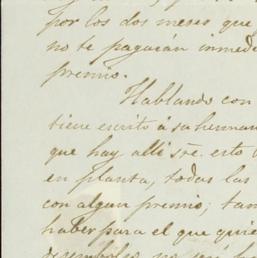 por los dos meses que
no te pagaián inmed
premio.
Hablando con
tiene escrito á su herman
que hay alli sre. esto
en planta, todas las
con algun premio; tam
haber para el que quie
desembolso no será